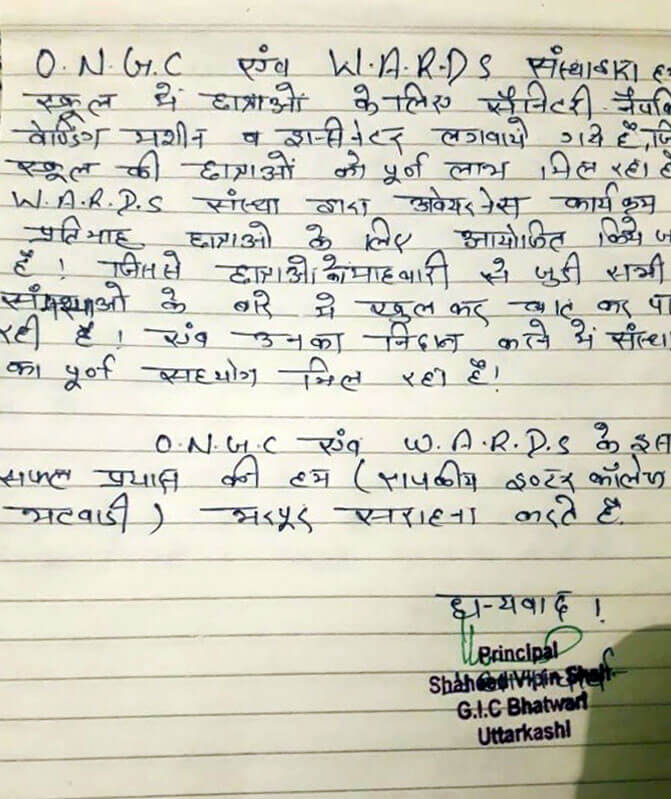 O.N.G.C एंव W.A.R.D.S संस्था द्वारा
स्कूल में छात्राओं के लिए सैनिटरी नैपकि
वेण्डिंग मशीन व इन्सीनेटर लगवाये गये हैं, जि
स्कूल की छात्राओं को पूर्न लाभ मिल रहा है
W.A.R.D.S संस्था द्वारा अवेयरनेस कार्यक्रम
प्रतिमाह छात्राओ के लिए आयोजित किये ज
हैं! जिससे छात्राओं को माहवारी से जुडी सभी
संमस्याओ के बारे मे खुलकर बात कर पा
रही हैं! एंव उनका निदान करने में संस्था
का पूर्न सहयोग मिल रहा है!
O.N.G.C एंव W.A.R.D.S के इस
सफल प्रयास की हम (राजकीय इण्टर कॉलेज
भटवाडी) भरपूर सराहना करते है.
धन्यवाद!
Principal
Shaheed Vipin Shah
G.I.C Bhatwari
Uttarkashi